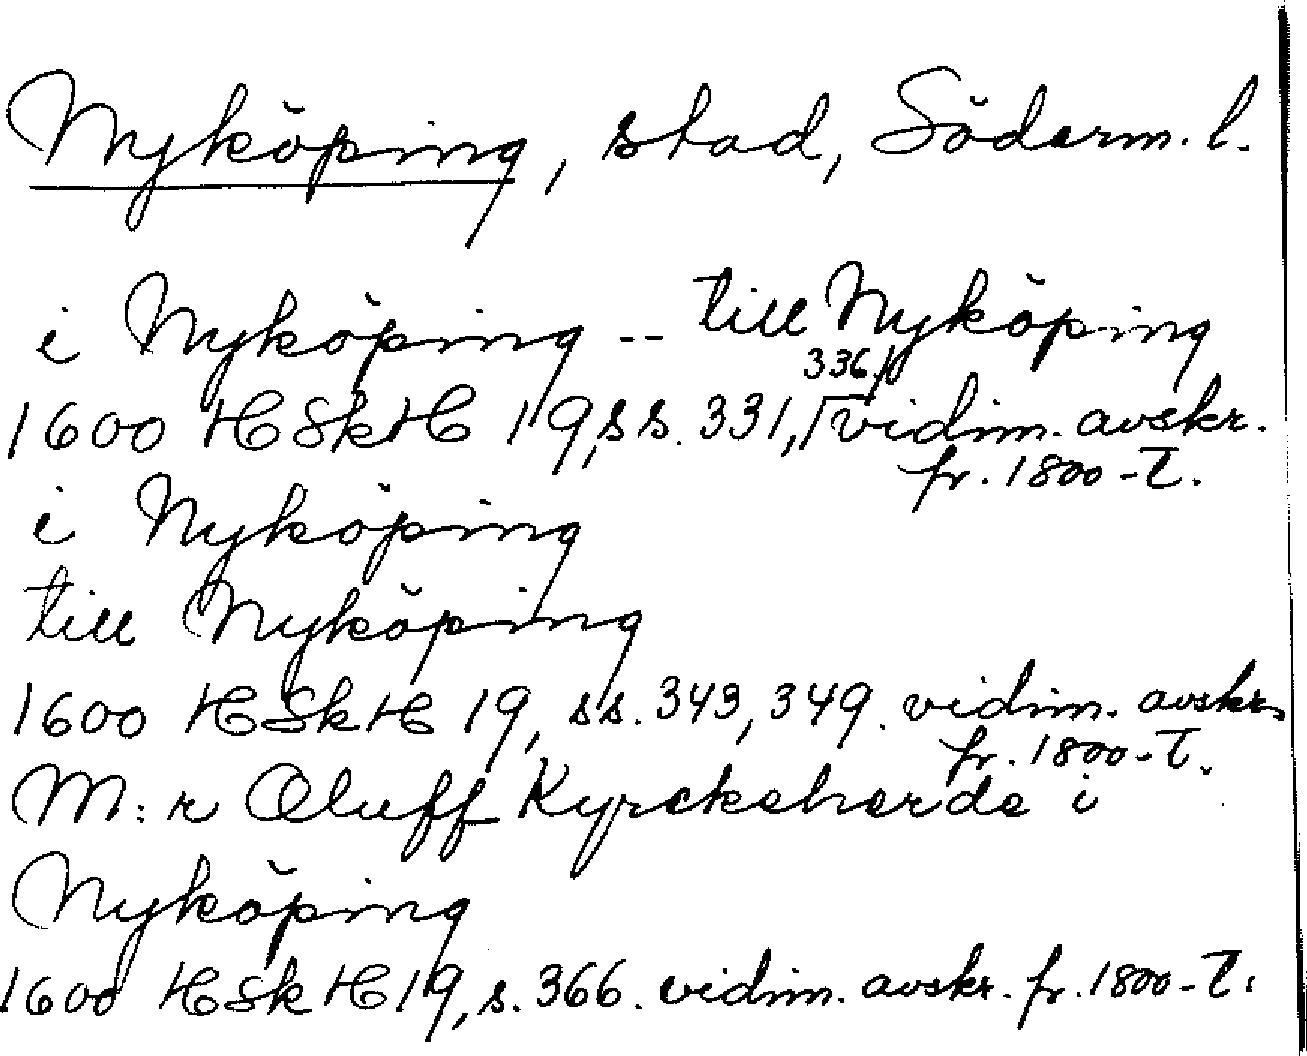 Nyköping, stad, Söderm. l.
i Nyköping -- till Nyköping
1600 HSkH 19, ss. 331, 336, vidim. avskr.
fr. 1800-T.
i Nyköping
till Nyköping
1600 HSkH 19, ss. 343, 349. vidim. avskr.
fr. 1800-T.
M:r Oluff Kyrckeherde i
Nyköping
1600 HSkH 19, s. 366. vidim. avskr. fr. 1800-T.